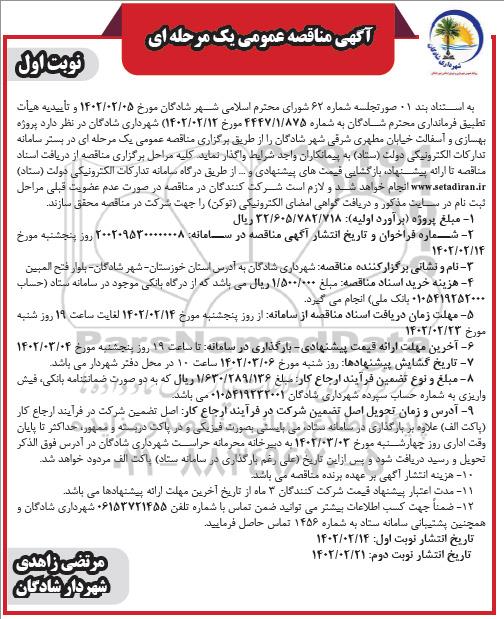 آگهی مناقصه عمومی یک مرحله ای
نوبت اول
شهرداری شادگان
به استناد بند ۰۱ صورتجلسه شماره ۶۲ شورای محترم اسلامی شهر شادگان مورخ ۱۴۰۲/۰۲/۰۵ و تأییدیه هیأت
تطبیق فرمانداری محترم شادگان به شماره ۴۴۴۷/۱/۸۷۵ مورخ ۱۴۰۲/۰۲/۱۲) شهرداری شادگان در نظر دارد پروژه
بهسازی و آسفالت خیابان مطهری شرقی شهر شادگان را از طریق برگزاری مناقصه عمومی یک مرحله ای در بستر سامانه
تدارکات الکترونیکی دولت (ستاد) به پیمانکاران واجد شرایط واگذار نماید. کلیه مراحل برگزاری مناقصه از دریافت اسناد
مناقصه تا ارائه پیشنهاد، بازگشایی قیمت های پیشنهادی و .. از طریق درگاه سامانه تدارکات الکترونیکی دولت (ستاد)
www.setadiran.ir انجام خواهد شد و لازم است شرکت کنندگان در مناقصه در صورت عدم عضویت قبلی مراحل
ثبت نام در سایت مذکور و دریافت گواهی امضای الکترونیکی (توکن) را جهت شرکت در مناقصه محقق سازند.
۱- مبلغ پروژه (برآورد اولیه): ۳۲/۶۰۵/۷۸۲/۷۱۸ ریال
۲- شماره فراخوان و تاریخ انتشار آگهی مناقصه در سامانه: ۲۰۰۲۰۹۵۳۰۰۰۰۰۰۸ روز پنجشنبه مورخ
۱۴۰۲/۰۲/۱۴
۳- نام و نشانی برگزارکننده مناقصه: شهرداری شادگان به آدرس استان خوزستان-شهر شادگان-بلوار فتح المبین
۴- هزینه خرید اسناد مناقصه: مبلغ ۱/۵۰۰/۰۰۰ ریال می باشد که از درگاه بانکی موجود در سامانه ستاد (حساب
۰۱۰۵۴۱۹۲۵۲۰۰۰ بانک ملی) انجام می گیرد.
۵- مهلت زمان دریافت اسناد مناقصه از سامانه: از روز پنجشنبه مورخ ۱۴۰۲/۰۲/۱۴ لغایت ساعت ۱۹ روز شنبه
مورخ ۱۴۰۲/۰۲/۲۳
۶- آخرین مهلت ارائه قیمت پیشنهادی- بارگذاری در سامانه: تا ساعت ۱۹ روز پنجشنبه مورخ ۱۴۰۲/۰۳/۰۴
۷- تاریخ گشایش پیشنهادها: روز شنبه مورخ ۱۴۰۲/۰۳/۰۶ ساعت ۱۰ در محل دفتر شهردار می باشد.
۸- مبلغ و نوع تضمین فرآیند ارجاع کار: مبلغ ۱/۶۳۰/۲۸۹/۱۳۶ ریال که به دو صورت ضمانتنامه بانکی، فیش
واریزی به شماره حساب سپرده شهرداری شادگان ۰۱۰۵۴۱۹۲۳۲۰۰۱ می باشد.
۹- آدرس و زمان تحویل اصل تضمین شرکت در فرآیند ارجاع کار: اصل تضمین شرکت در فرآیند ارجاع کار
(پاکت الف) علاوه بر بارگذاری در سامانه ستاد، می بایستی بصورت فیزیکی و در پاکت دربسته و ممهور، حداکثر تا پایان
وقت اداری روز چهارشنبه مورخ ۱۴۰۲/۰۳/۰۳ به دبیرخانه محرمانه حراست شهرداری شادگان در آدرس فوق الذکر
تحویل و رسید دریافت شود و پس از این تاریخ (علی رغم بارگذاری در سامانه ستاد) پاکت الف مردود خواهد شد.
۱۰- هزینه انتشار آگهی بر عهده برنده مناقصه می باشد.
۱۱- مدت اعتبار پیشنهاد قیمت شرکت کنندگان ۳ ماه از تاریخ آخرین مهلت ارائه پیشنهادها می باشد.
۱۲- ضمناً جهت کسب اطلاعات بیشتر می توانید ضمن تماس با شماره تلفن ۰۶۱۵۳۷۲۱۴۵۵ شهرداری شادگان و
همچنین پشتیبانی سامانه ستاد به شماره ۱۴۵۶ تماس حاصل فرمایید.
تاریخ انتشار نوبت اول: ۱۴۰۲/۰۲/۱۴
تاریخ انتشار نوبت دوم: ۱۴۰۲/۰۲/۲۱
مرتضی زاهدی
شهردار شادگان